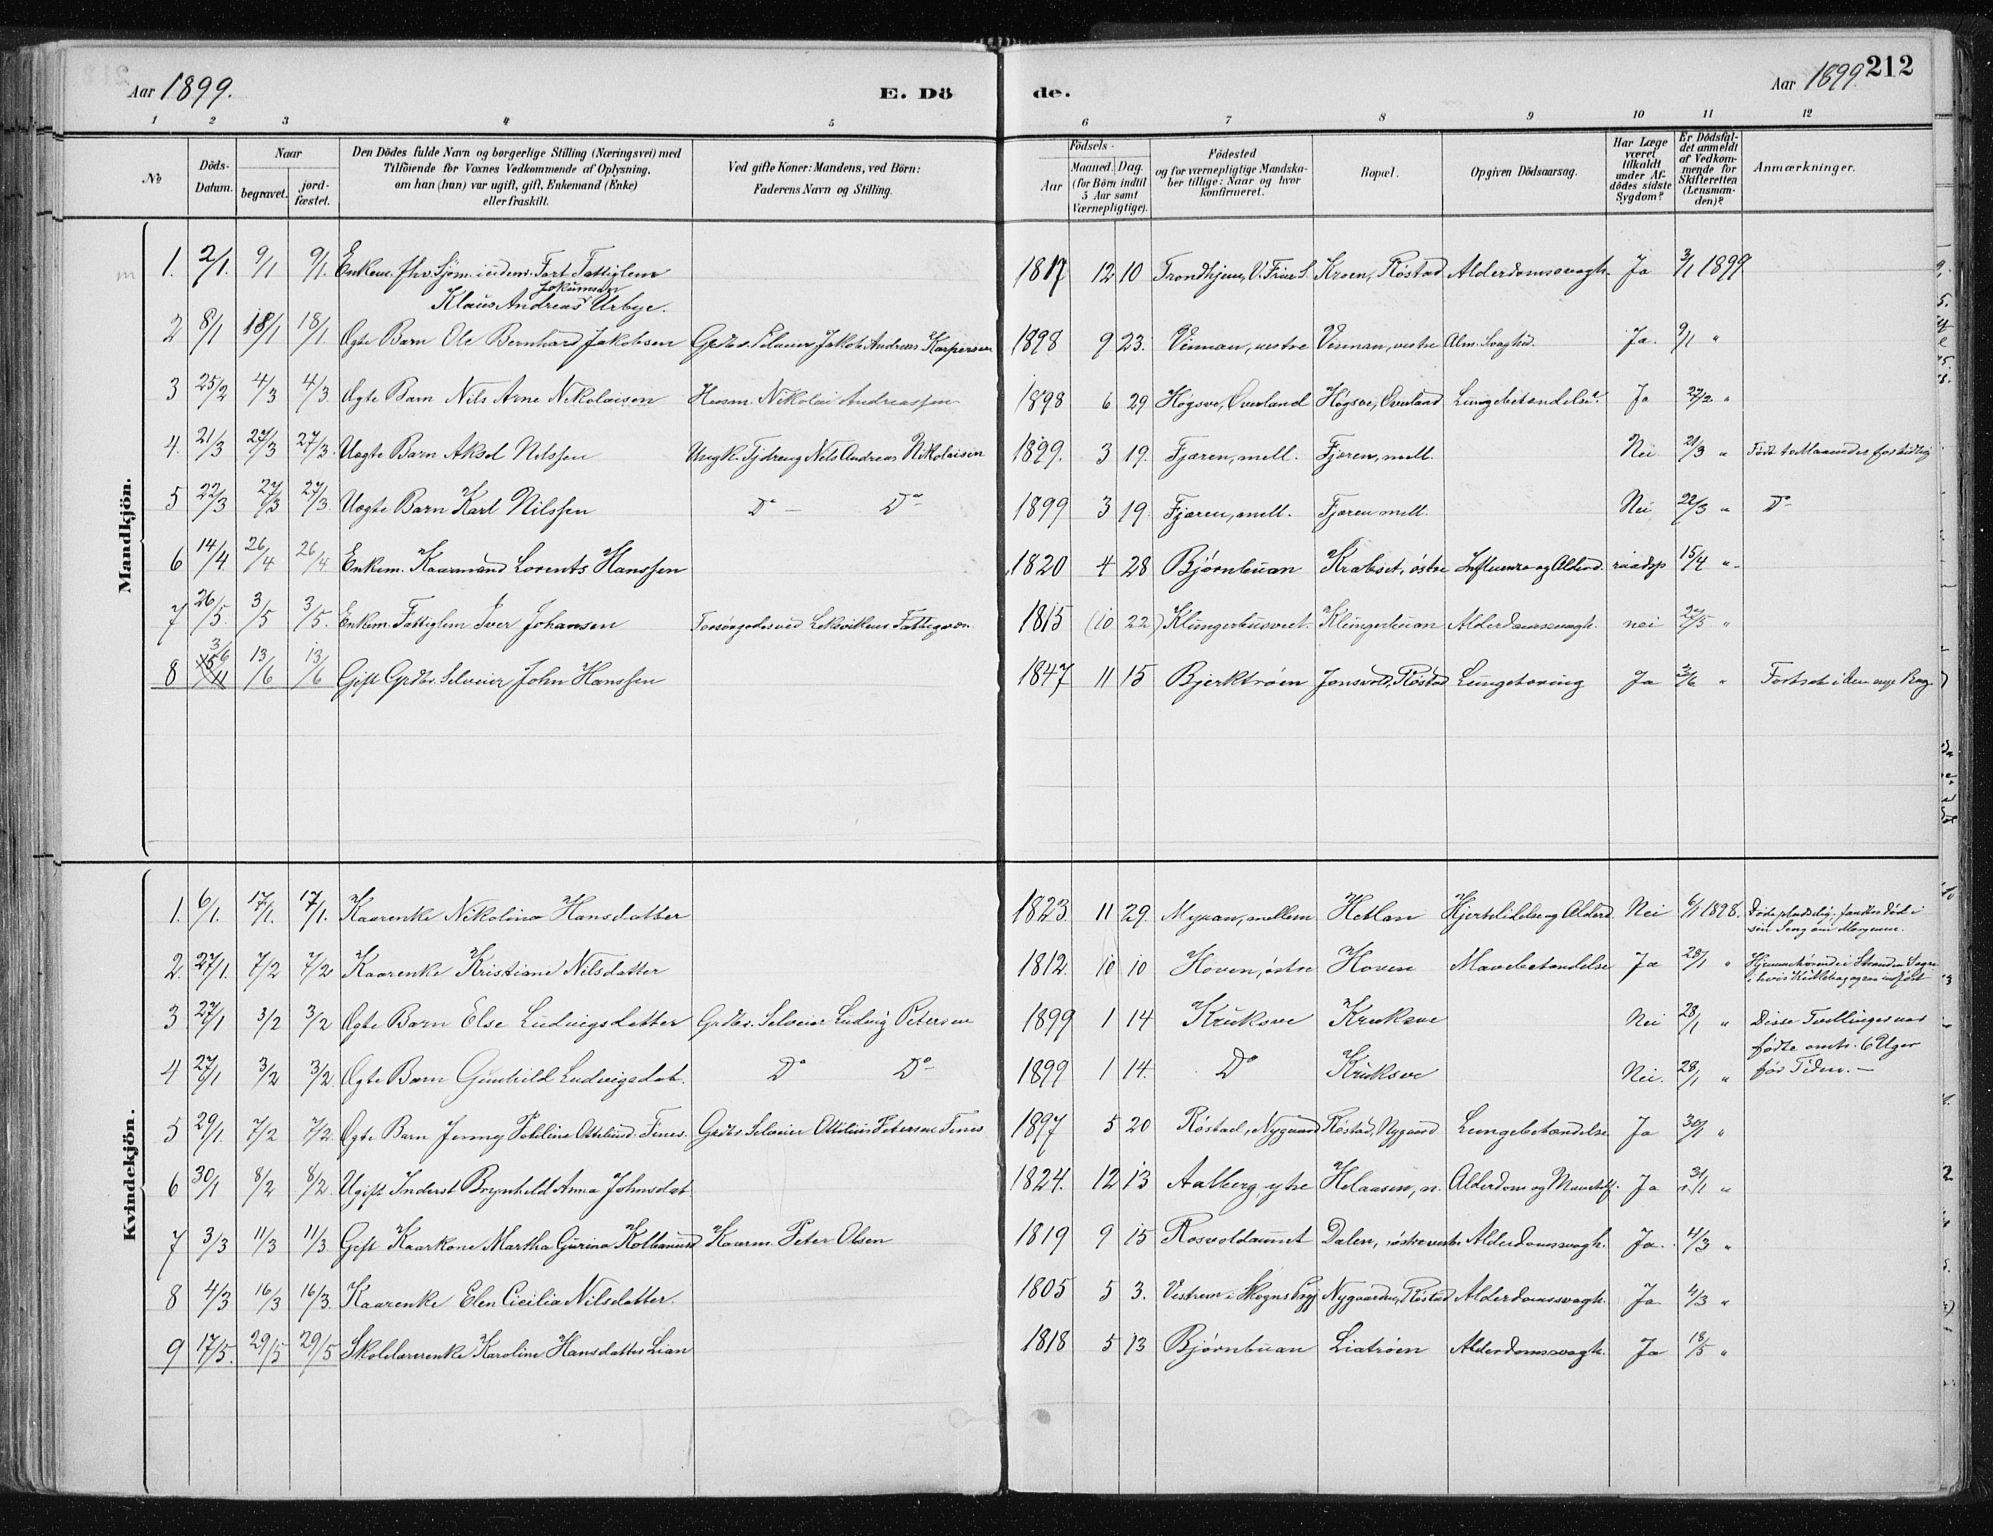 Aar 1899. E. Dö
de. Aar 1899. 212
1 2 3 4 5 6 7 8 9 10 11 12
No Döds-Datum. Naar begravet. jord-fæstet. Den Dödes fulde Navn og borgerlige Stilling (Næringsvei) med Tilföiende for Voxnes Vedkommende af Oplysning, om han (hun) var ugift, gift, Enkemand (Enke) eller fraskilt. Ved gifte Koner: Mandens, ved Börn: Faderens Navn og Stilling.
Födsels- Aar Maaned. Dag. (for Börn indtil 5 Aar samt Værnepligtige). Födested og for værnepligtige Mandska-ber tillige: Naar og hvor konfirmeret. Bopæl. Opgiven Dödsaarsag. Har Læge været tilkaldt under Af-dödes sidste Sygdom? Er Dödsfal-det anmeldt af Vedkom-mende for Skifteretten (Lensman-den)? Anmærkninger.
Mandkjön.
1. 2/1. 9/1 9/1. Enkem. fhv. Sjöm. Fattiglem Klaus Andreas Jokumsen Urbye. 1817 12 10 Trondhjem, V. Frue S. Kroen, Røstad Alderdomssvagh. Ja 3/1 1899
2 8/1 18/1 18/1. Ægte Barn Ole Bernhard Jakobsen Grdbr. Selveier Jakob Andreas Kaspersen 1898 9 23. Vinnan, vestre Vinnan, vestre Alm. Svaghed. Ja. 9/1 "
3 25/2 4/3 4/3. Ægte Barn Nils Arne Nikolaisen Husm. Nikolai Andreassen 1898 6 29 Høgsve, Øverland Høgsve, Øverland Lungebetændelse. Ja 27/2 "
4. 21/3 27/3 27/3. Uægte Barn Aksel Nilssen Ungk. Tjdreng Nils Andreas Nikolaisen 1899. 3 19. Fjæren, mell. Fjæren, mell. Nei 21/3 " Födt to Maaneder for tidlig
5 22/3 27/3 27/3. Uægte Barn Karl Nilssen Do — Do 1899 3 19. Fjæren, mell. Fjæren mell. Nei 22/3 " Do
6 14/4. 26/4 26/4. Enkem. Kaarmand Lorents Hanssen 1820 4 28 Bjørnbuan Krabset, østre Influenza og Alderd. 15/4 "
7 26/5. 3/5 3/5. Enkem. Fattiglem Iver Johansen Forsørgedes ved Leksvikens Fattigvæsen 1815 (10 22) Klungerhusvret. Klungerbuan Alderdomssvagh. nei 27/5 "
8 3/6 13/6 13/6 Gift Grdbr. Selveier John Hanssen 1847 11 15 Bjerktrøen Jonsvold, Røstad Lungetæring Ja 3/6 " Fortsat i den nye Bog
Kvindekjön.
1. 6/1. 17/1. 17/1. Kaarenke Nikolina Hansdatter 1823. 11 29. Myran, mellem Hetlan Hjertelidelse og Alderd. Nei 6/1 1898. Døde pludselig, fandtes död i sin Seng om Morgenen.
2. 27/1. 7/2 7/2 Kaarenke Kristiane Nilsdatter 1812. 10 10 Hoven, østre Hoven Mavebetændelse Ja 28/1 " Hjemmehørende i Stranden Sogn i hvis Kirkebog ogsaa indført
3 27/1 3/2 3/2 Ægte Barn Else Ludvigsdatter Grdbr. Selveier Ludvig Petersen 1899 1 14 Kruksve Kruksve Nei 28/1 " Disse Tvillinger var
4 27/1 3/2 3/2. Ægte Barn Gunhild Ludvigsdat. Do Do 1899 1 14. Do Kruksve Nei. 28/1 " fødte omtr. 6 Uger før Tiden. —
5 29/1. 7/2 7/2. Ægte Barn Jenny Petline Fenes. Grdbr. Selveier Ottilius Petersen Fenes 1897 5 20 Røstad, Nygaard Røstad, Nygaard Lungebetændelse Ja 30/1 "
6 30/1 8/2 8/2. Ugift Inderst Brynhild Anna Johnsdat 1824. 12 13 Aalberg, ytre Helaasen, n. Alderdom og Ja 31/1 "
7 3/3 11/3 11/3 Gift Kaarkone Martha Gurina Kolbanusd Kaarm. Peter Olsen 1819 9 15 Rosvoldaunet Dalen, Alderdomssvagh. Ja. 4/3 "
8 4/3 16/3 16/3. Kaarenke Elen Cicilia Nilsdatter. 1805 5 3. Vestrem i Skogns Prgj Nygaarden, Røstad Alderdomssvagh. Ja 4/3 "
9 17/5. 29/5 29/5 Skolelærerenke Karoline Hansdatter Lian 1818 5 13 Bjørnbuan Liatrøen Alderdomssvagh. Ja 18/5 "